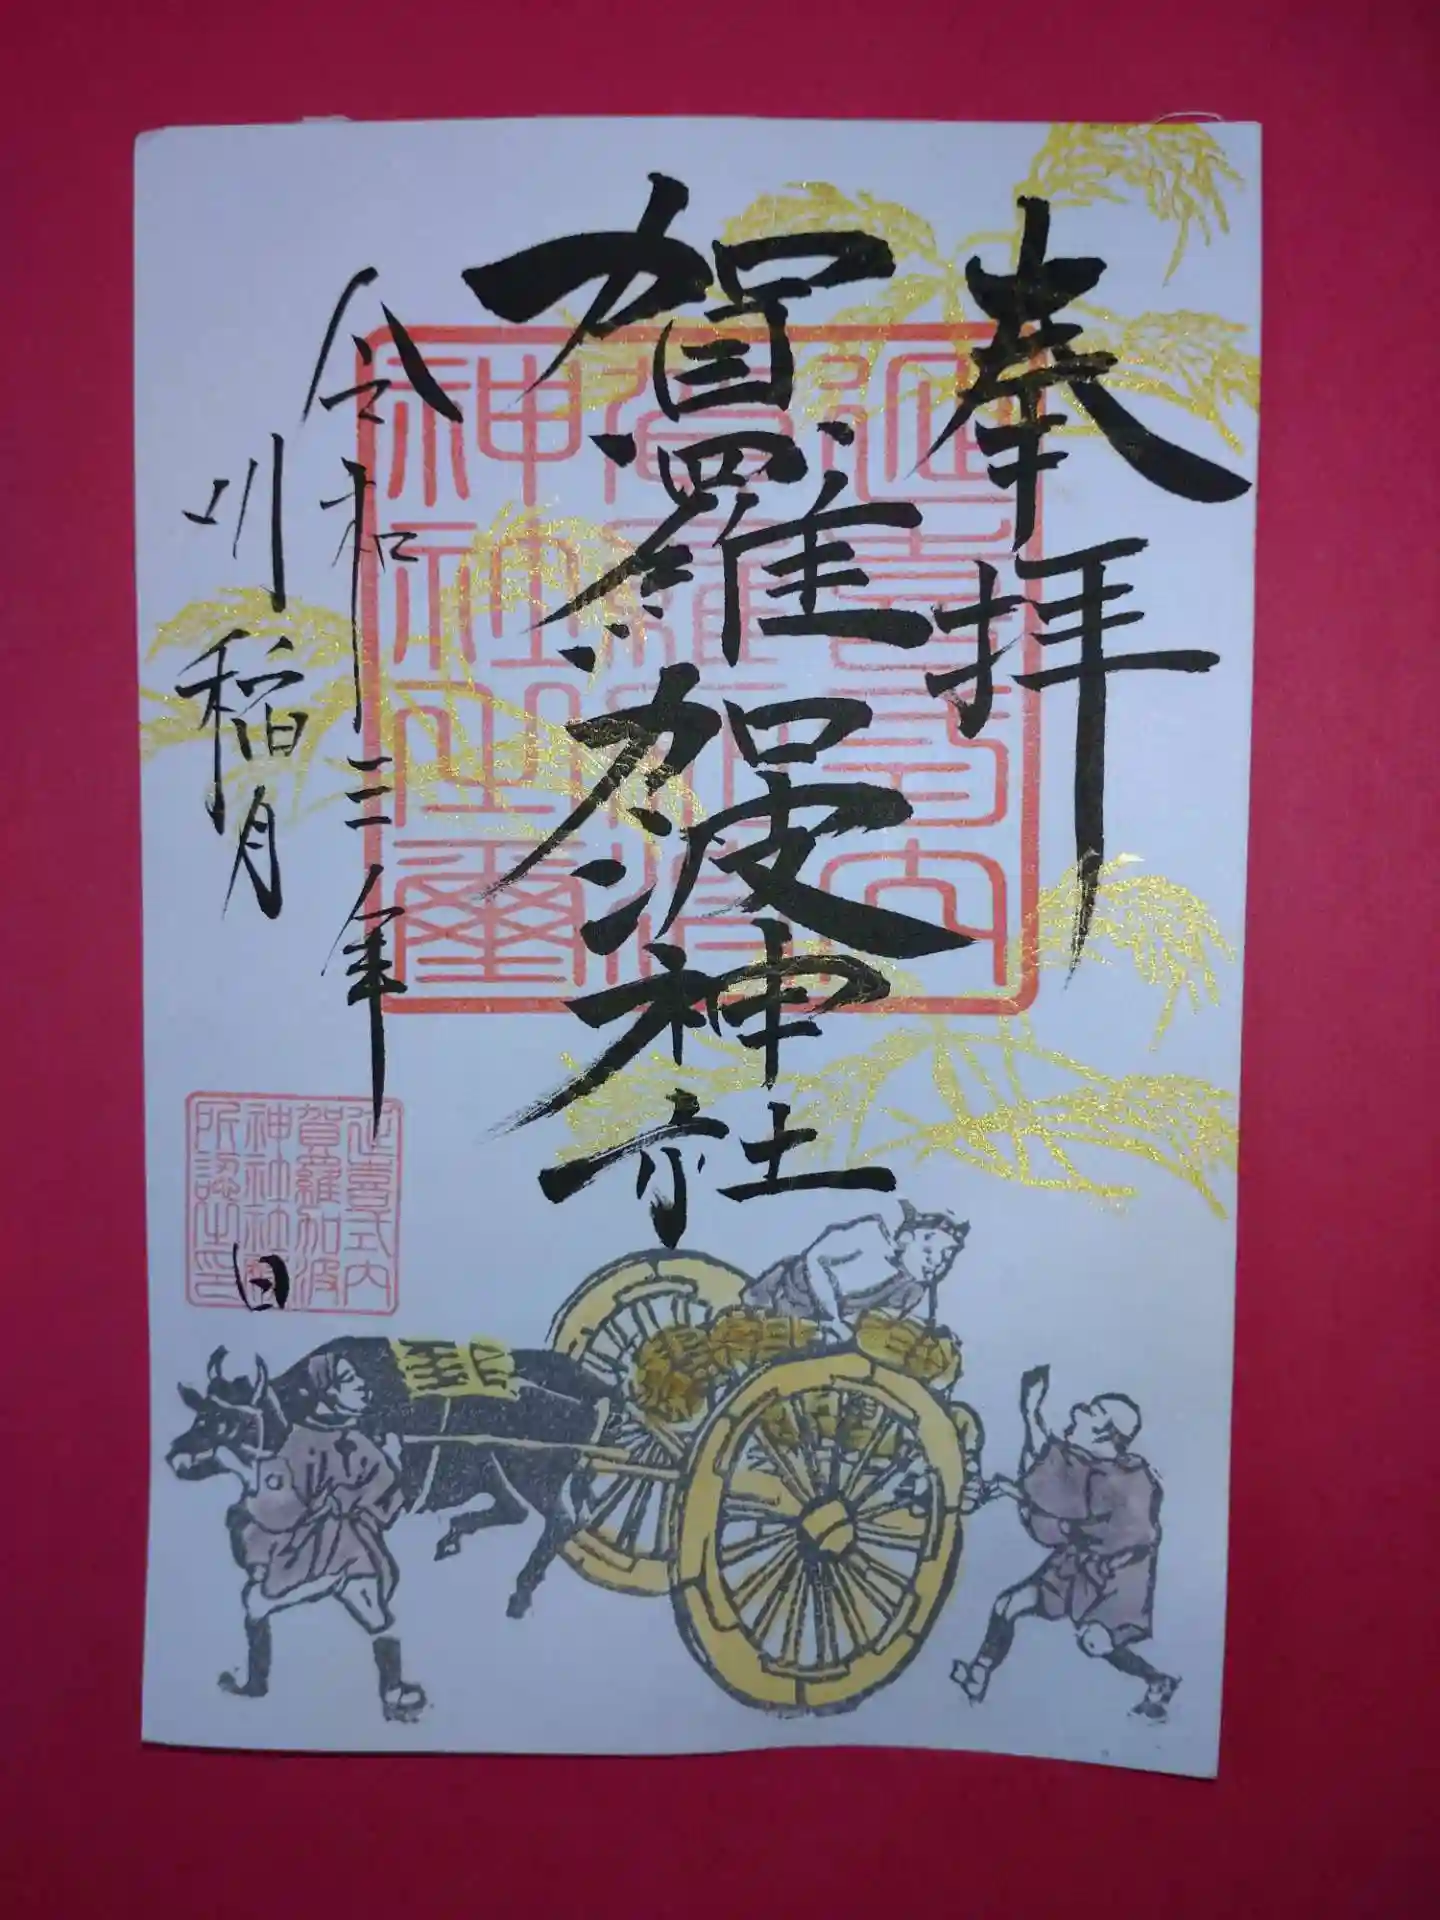 奉拝
賀羅加波神社
令和三年
刈稲月
日
延喜式内
賀羅加波
神社之璽
延喜式内
賀羅加波
神社社務
所認之印